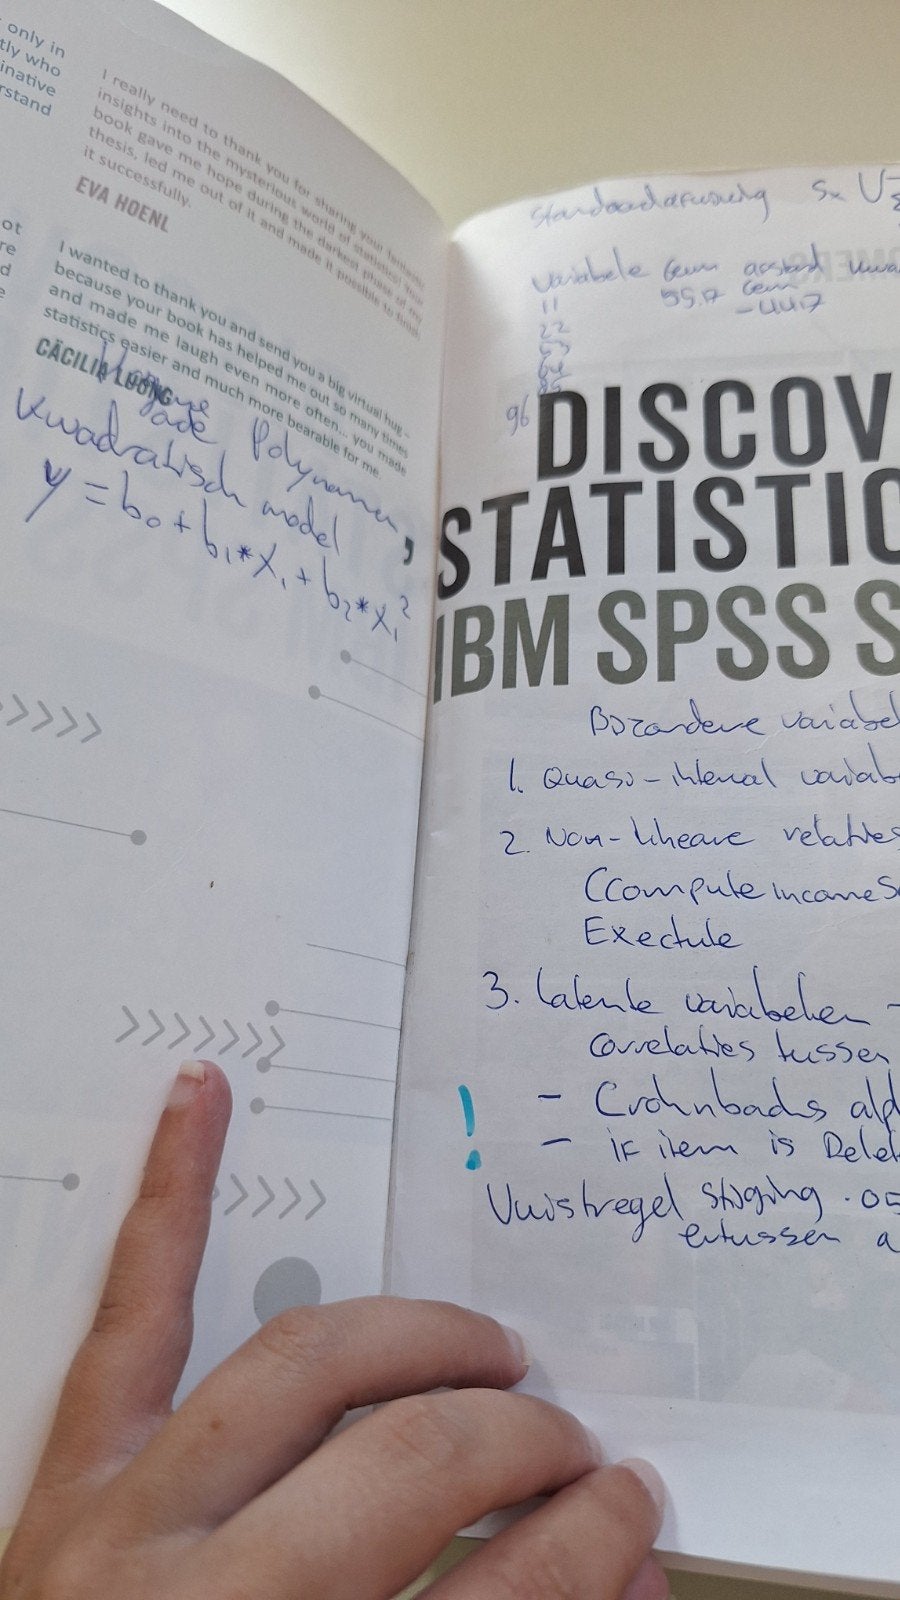 only in
tly who
inative
rstand
I really need to thank you for sharing your fantastic
insights into the mysterious world of statistics! Your
book gave me hope during the darkest phase of my
thesis, led me out of it and made it possible to finish
it successfully.
EVA HOENL
ot
re
d
e
I wanted to thank you and send you a big virtual hug –
because your book has helped me out so many times
and made me laugh even more often... you made
statistics easier and much more bearable for me.
CÄCILIA LUONG
Hogere
orde Polynomen,
Kwadratisch model
y = b0 + b1 * x1 + b2 * x1²
Standaardafwijking Sx
variabele Gem afstand
11 55.17 Gem
22 -44.17
96
DISCOV
STATISTIC
IBM SPSS S
Bijzondere variabel
1. Quasi-interval variab
2. Non-lineare relaties
(Compute incomeS
Exectule
3. latente variabelen -
Correlaties tussen
! - Crohnbachs alp
- if item is Delet
Vuistregel stijging .05
ertussen a